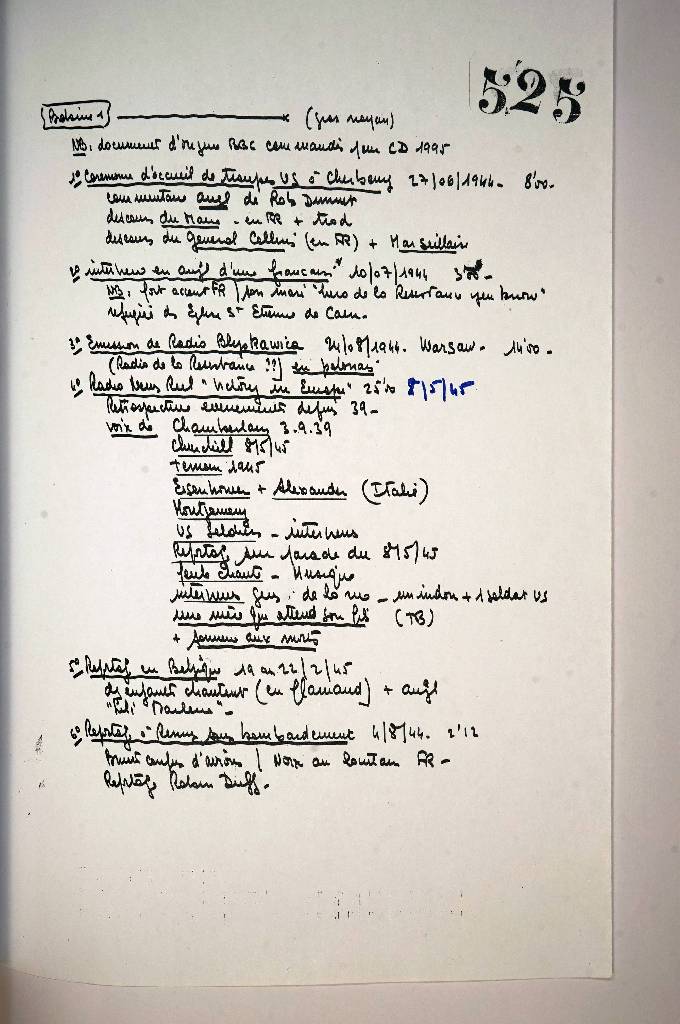 525
Bobine 1 (gros noyau)
NB: document d'origine BBC commandés pour CD 1995
1° Ceremonie d'accueil de troupes US à Cherbourg 27/06/1944 - 8'00 -
commentaire angl de Rob Dunnet
discours du Maire - en FR + trad
discours du General Collins (en FR) + Marseillaise
2° interview en angl d'une française 10/07/1944
NB: fort accent FR / son mari "hero de la Resistance you know"
refugiée ds Eglise St Etienne de Caen -
3° Emission de Radio 24/08/1944 - Warsaw - 14'00 -
(Radio de la Resistance ??) en polonais
4° Radio News Reel "Victory in Europe" 25'00 8/5/45
Retrospective evenements depuis 39 -
voix de Chamberlain 3.9.39
Churchill 8/5/45
1945
Eisenhower + Alexander (Italie)
Montgomery
US Soldiers - interviews
Reportage sur parade du 8/5/45
foule chante - Musique
interviews gens de la rue - + 1 soldat US
une mère qui attend son fils (TB)
+ sonnerie aux morts
5° Reportage en Belgique 19 au 22/2/45
ds enfants chantent (en flamand) + angl
"Lili Marlene" -
6° Reportage à Rennes sous bombardement 4/8/44 - 2'12
Bruit d'avions / Voix au lointain FR -
Reportage Robin Duff -